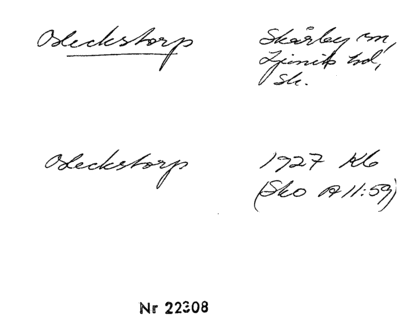 Bleckstorp
Skårby sn,
Ljunits hd,
Sk.
Bleckstorp
1927 Kb
(Sko A11:59)
Nr 22308